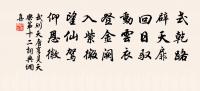 式乾路
辟天扉
回日馭
動雲衣
登金闕
入紫微
望仙駕
仰恩徽
武則天唐享昊天
樂第十二